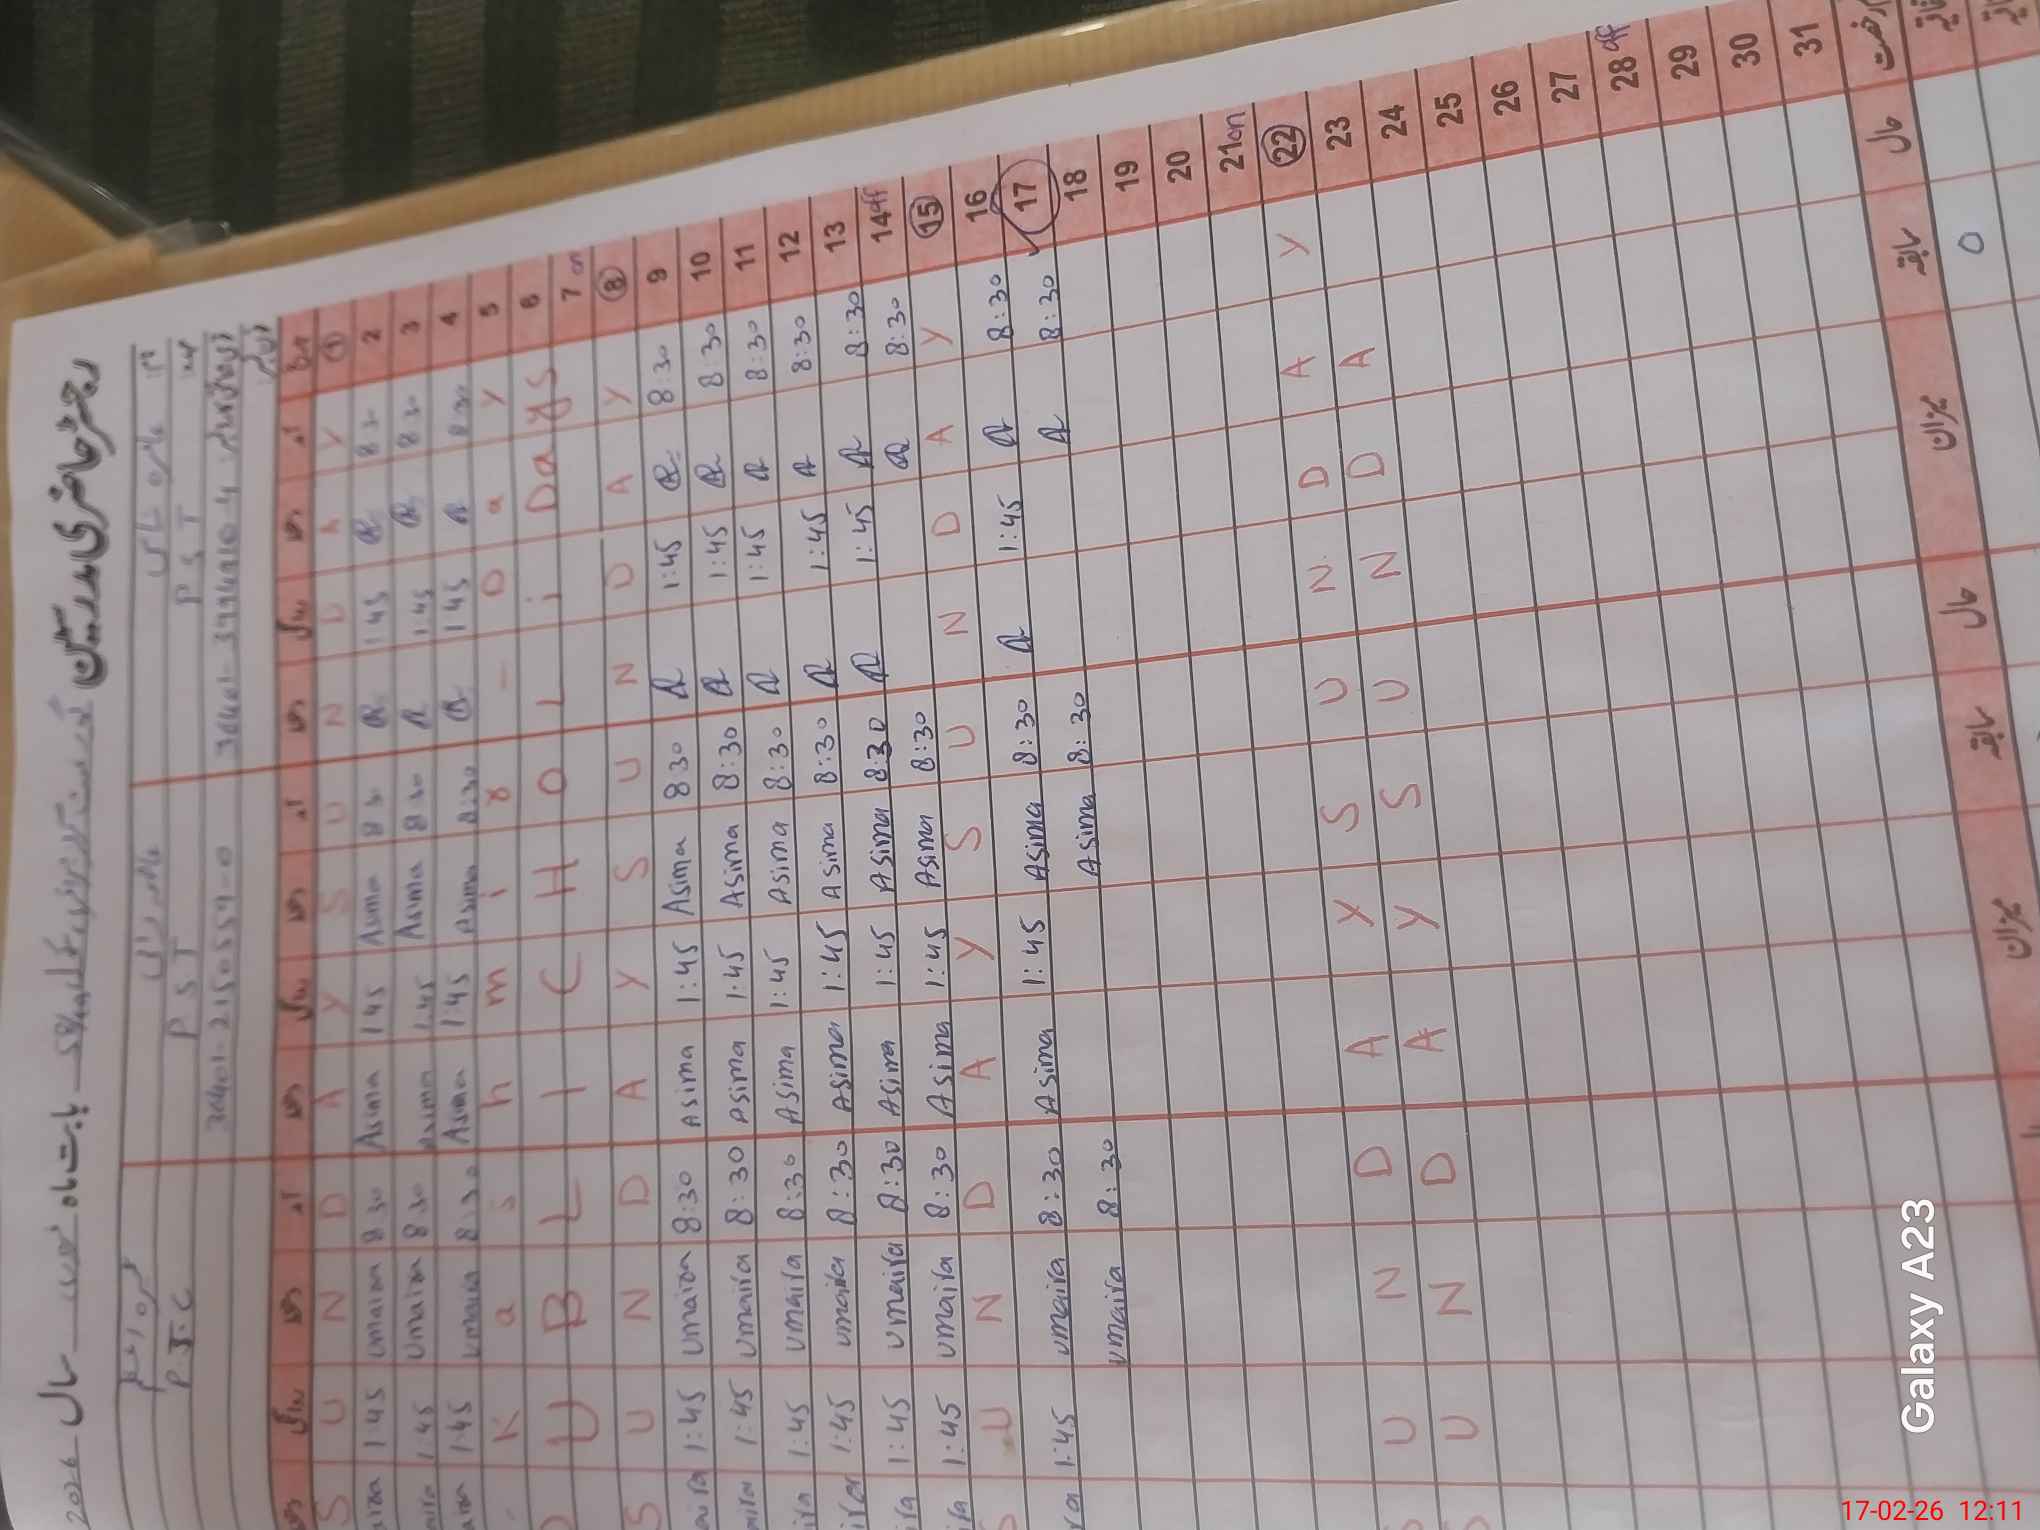 رجسٹر حاضری مدرسین
بابت ماہ
سال 2026
P S T
P S T
36401-2150559-0
تاریخ آمد دستخط روانگی دستخط آمد دستخط روانگی دستخط آمد دستخط روانگی دستخط
1 S U N D A Y S U N D A Y S U N D A Y
2 8 30 R 1:45 R 8 30 Asima 1 45 Asima 8 30 Umaira 1 45
3 8 30 R 1:45 R 8 30 Asima 1:45 Asima 8 30 Umaira 1:45
4 8 30 R 1 45 R 8:30 Asima 1:45 Asima 8:30 Umaira 1:45
5 K a s h m i r - D a y
6 PUBLIC HOLiDays
7 on
8 S U N D A Y S U N D A Y
9 8:30 R 1:45 R 8:30 Asima 1:45 Asima 8:30 Umaira 1:45
10 8:30 R 1:45 R 8:30 Asima 1:45 Asima 8:30 Umaira 1:45
11 8:30 R 1:45 R 8:30 Asima 1:45 Asima 8:30 Umaira 1:45
12 8:30 R 1:45 R 8:30 Asima 1:45 Asima 8:30 Umaira 1:45
13 8:30 R 1:45 R 8:30 Asima 1:45 Asima 8:30 Umaira 1:45
14 off 8:30 R 8:30 Asima 1:45 Asima 8:30 Umaira 1:45
15 S U N D A Y S U N D A Y
16 8:30 R 1:45 R 8:30 Asima 1:45 Asima 8:30 Umaira 1:45
17 8:30 R 8:30 Asima 8:30 Umaira
18
19
20
21 on
22 S U N D A Y S U N D A Y
23 S U N D A Y S U N D A
24
25
26
27
28 off
29
30
31
رخصت حال سابقہ میزان حال سابقہ میزان
0
Galaxy A23
17-02-26 12:11